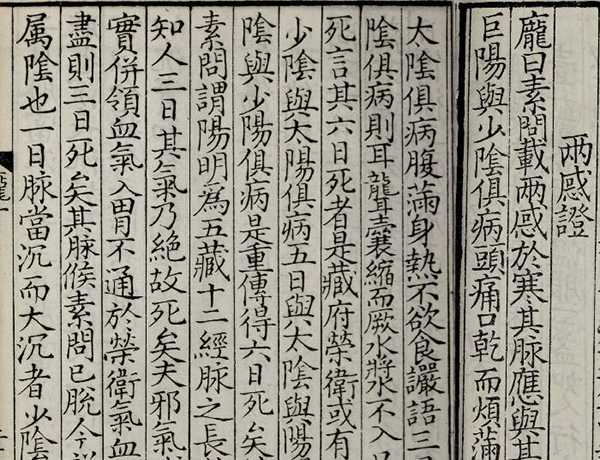 兩感證
龐曰素問載兩感於寒其脉應與其
巨陽與少陰俱病頭痛口乾而煩滿
太陰俱病腹滿身熱不欲食讝語三
陰俱病則耳聾囊縮而厥水漿不入
死言其六日死者是藏府榮衛或有
少陰與太陽俱病五日與太陰與陽
陰與少陽俱病是重傳得六日死矣
素問謂陽明爲五藏十二經脉之長
知人三日其氣乃絶故死矣夫邪氣
實併領血氣入胃不通於榮衛氣血
盡則三日死矣其脉候素問已脫今
属陰也一日脉當沉而大沉者少陰